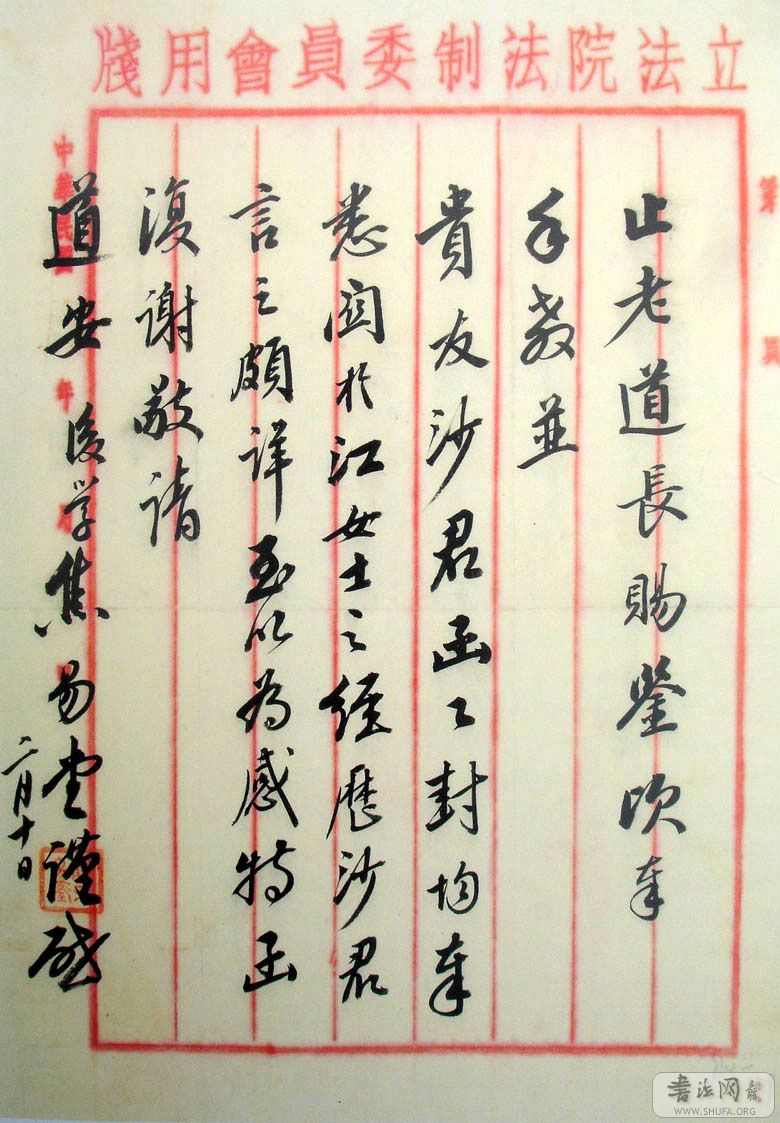 立法院法制委員會用牋
第 頁
止老道長賜鑒頃奉
手教並
貴友沙君函乙封均奉
悉關於江女士之經歷沙君
言之頗詳至以為感特函
復謝敬請
道安 後學焦易堂謹啟
二月十日
中華民國 年
書法网
WWW.SHUFA.ORG